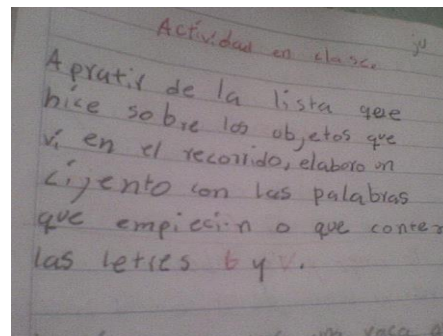 Actividad en clase.
Apratir de la lista que
hice sobre los objetos que
vi en el recorrido, elaboro un
cuento con las palabras
que empiecin o que conten
las letres b y v.
vaca